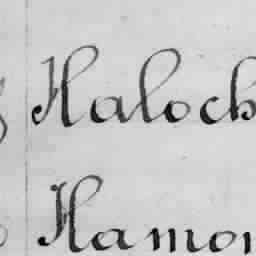 Haloch
Hamon